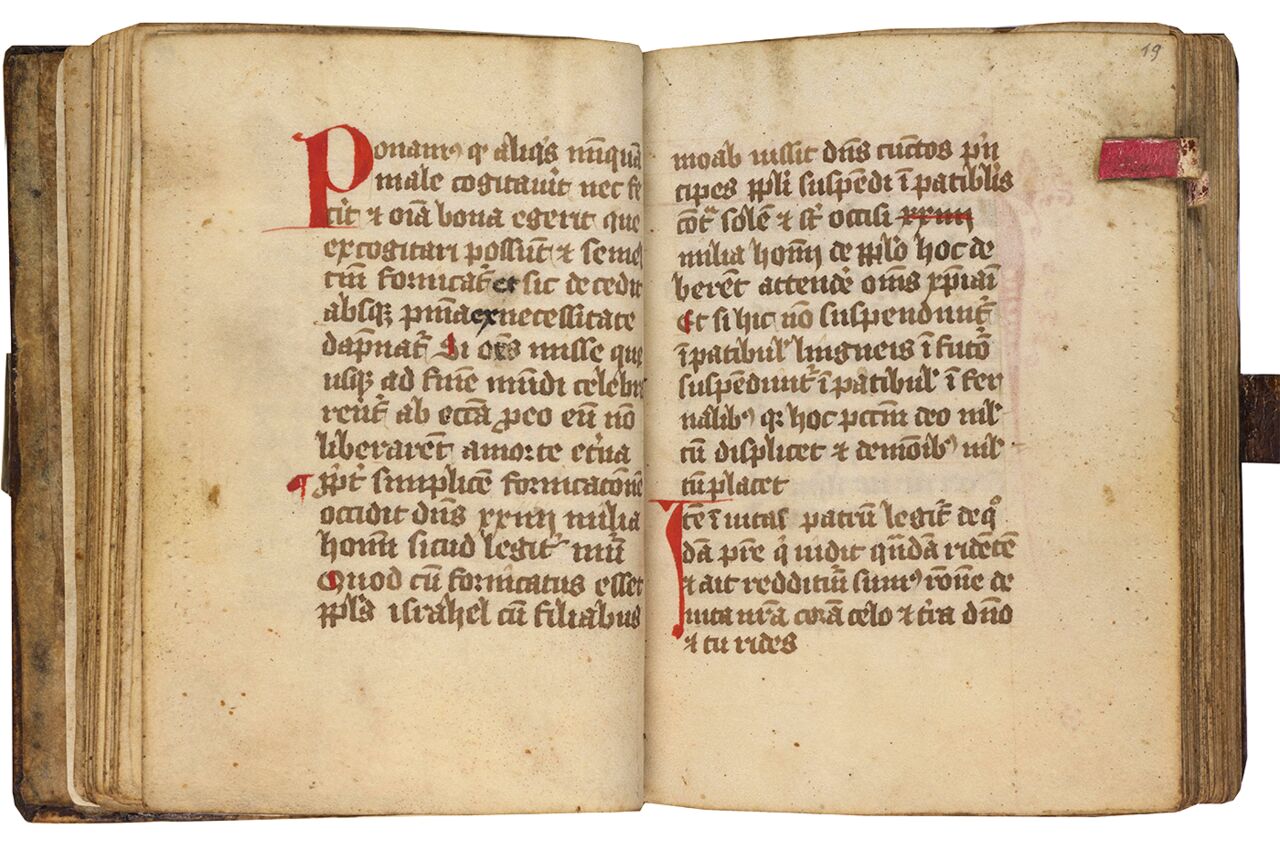 Ponam⁹ qͥ aliq̄s nūquā
male cogitauit nec fe
cit ⁊ oīa bona egerit que
excogitari possūt ⁊ semel
tm̄ fornicat᷑ et sic decedit
absqꝫ pn̄ia ex necessitate
dāpnat᷑ Si oēs misse que
usqꝫ ad finē mūdi celebra
rent᷑ ab ecc̄a ꝓ eo eū nō
liberarēt a morte et̄na
¶ Pp̄t᷑ simplicē fornicacōnē
occidit dn̄s xxiiii milia
homī sicud legit᷑ nūi
Quod cū fornicatus esset
pp̄ls israhel cū filiabus
19
moab iussit dn̄s cūctos pͥn
cipes pp̄li suspēdi ī patiblis
cōt᷑ solē ⁊ st᷑ occisi xxiiii
milia homī de pp̄lo hoc de
berēt attendē omīs xp̄iani
Et si hic nō suspendunt᷑
ī patibul᷑ lingneis ī futō
suspēdunt᷑ ī patibul᷑ ī fer
nalib⁹ qꝛ hoc pcc̄m deo mul
tū displicet ⁊ demōib⁹ mul
tū placet
Itē ī uitas patrū legit᷑ de qͦ
dā pr̄e qͥ uidit quēdā ridētē
⁊ ait reddituͥ sum⁹ rōnē de
uita nr̄a corā celo ⁊ t̄ra dn̄o
⁊ tu rides